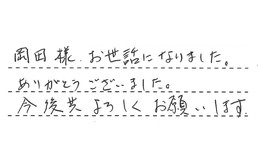 岡田様.お世話になりました。
ありがとうございました。
今後共よろしくお願いします